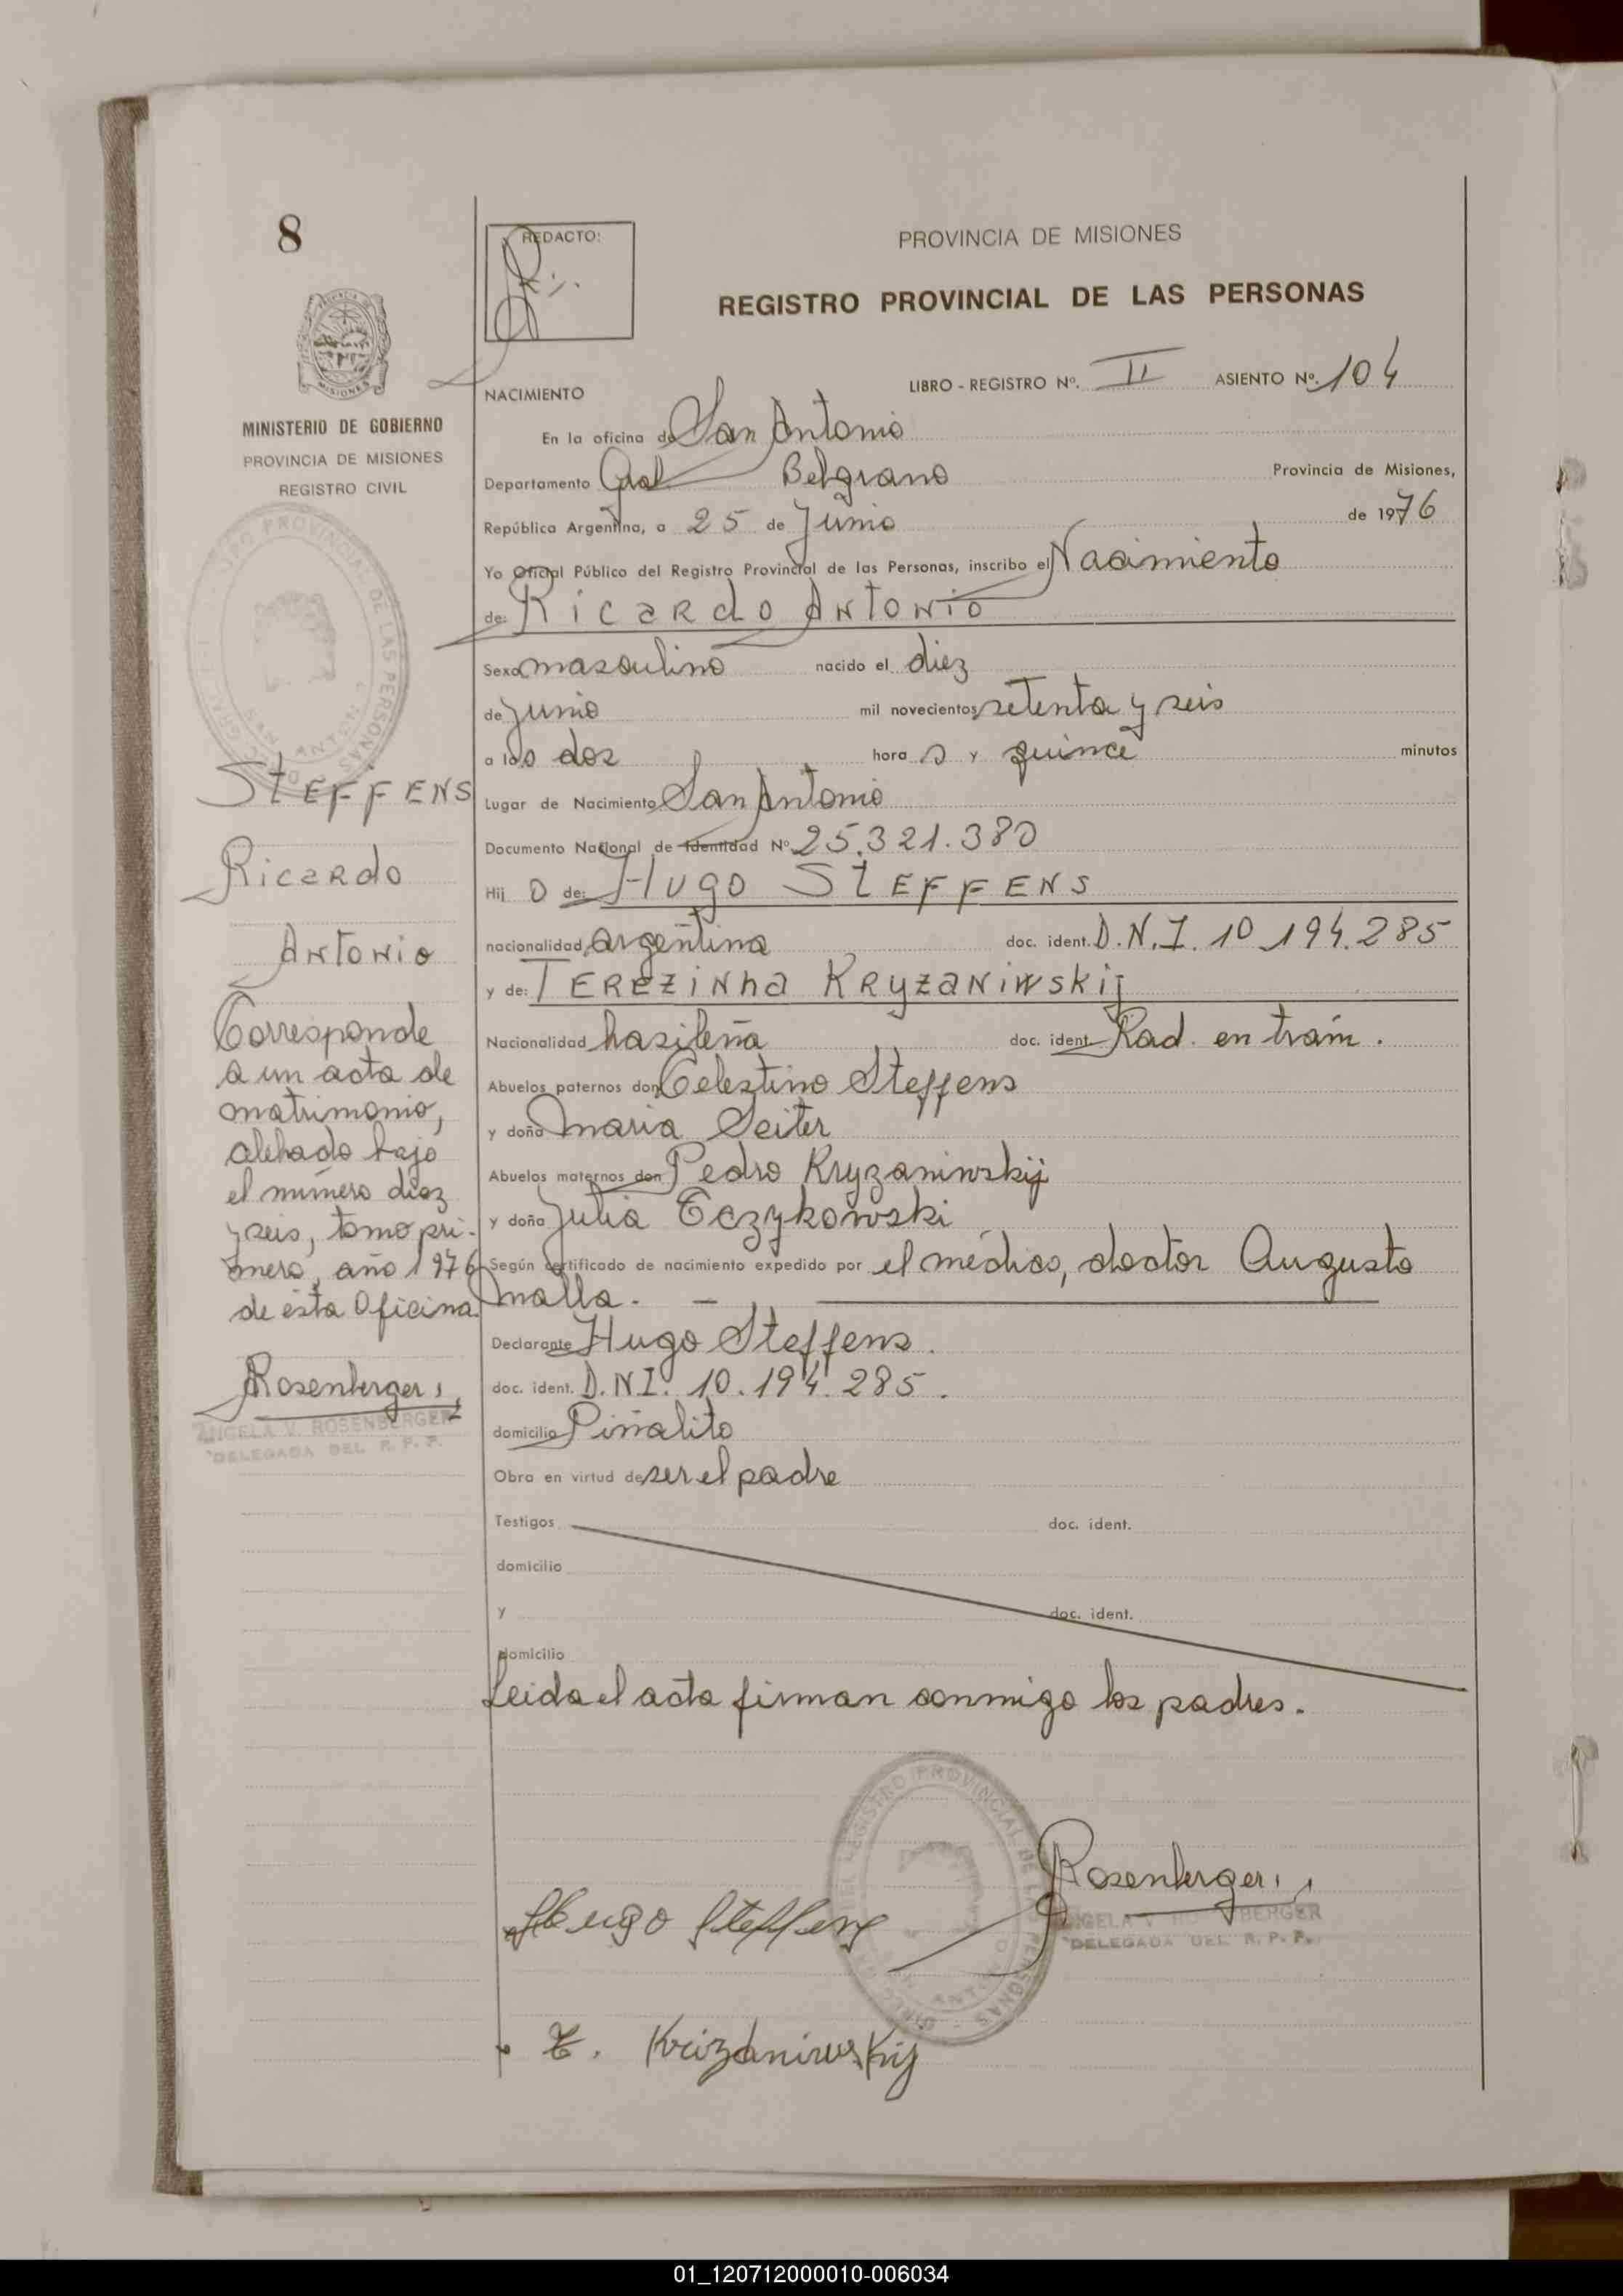 8
REDACTO:
PROVINCIA DE MISIONES
REGISTRO PROVINCIAL DE LAS PERSONAS
LIBRO - REGISTRO Nº. II ASIENTO Nº. 104
NACIMIENTO
MINISTERIO DE GOBIERNO
PROVINCIA DE MISIONES
REGISTRO CIVIL
En la oficina de San Antonio
Departamento Gral Belgrano Provincia de Misiones,
República Argentina, a 25 de Junio de 1976
Yo Oficial Público del Registro Provincial de las Personas, inscribo el Nacimiento
de: Ricardo Antonio
Sexo masculino nacido el diez
de Junio mil novecientos setenta y seis
a las dos hora s y quince minutos
Lugar de Nacimiento San Antonio
Documento Nacional de Identidad Nº 25.321.380
Hij o de: Hugo STEFFENS
nacionalidad argentina doc. ident. D.N.I. 10.194.285
y de: TEREZINha KRyzaNiwskij
Nacionalidad basileña doc. ident. Rad. en trám.
Abuelos paternos don Celestino Steffens
y doña Maria Seiter
Abuelos maternos don Pedro Kryzaniwskij
y doña Julia Eczykowski
Según certificado de nacimiento expedido por el médico, doctor Augusto
Malla. —
Declarante Hugo Steffens.
doc. ident. D.N.I. 10.194.285.
domicilio Piñalito
Obra en virtud de ser el padre
Testigos doc. ident.
domicilio
y doc. ident.
domicilio
Leida el acta firman conmigo los padres.
STEFFENS
Ricardo
Antonio
Corresponde
a un acta de
matrimonio,
labrado bajo
el número diez
y seis, tomo pri-
mero, año 1976
de ésta Oficina.
Rosenberger
ANGELA V. ROSENBERGER
DELEGADA DEL R. P. P.
Hugo Steffens
Rosenberger
ANGELA V. ROSENBERGER
DELEGADA DEL R. P. P.
T. Krizaniwskij
01_120712000010-006034